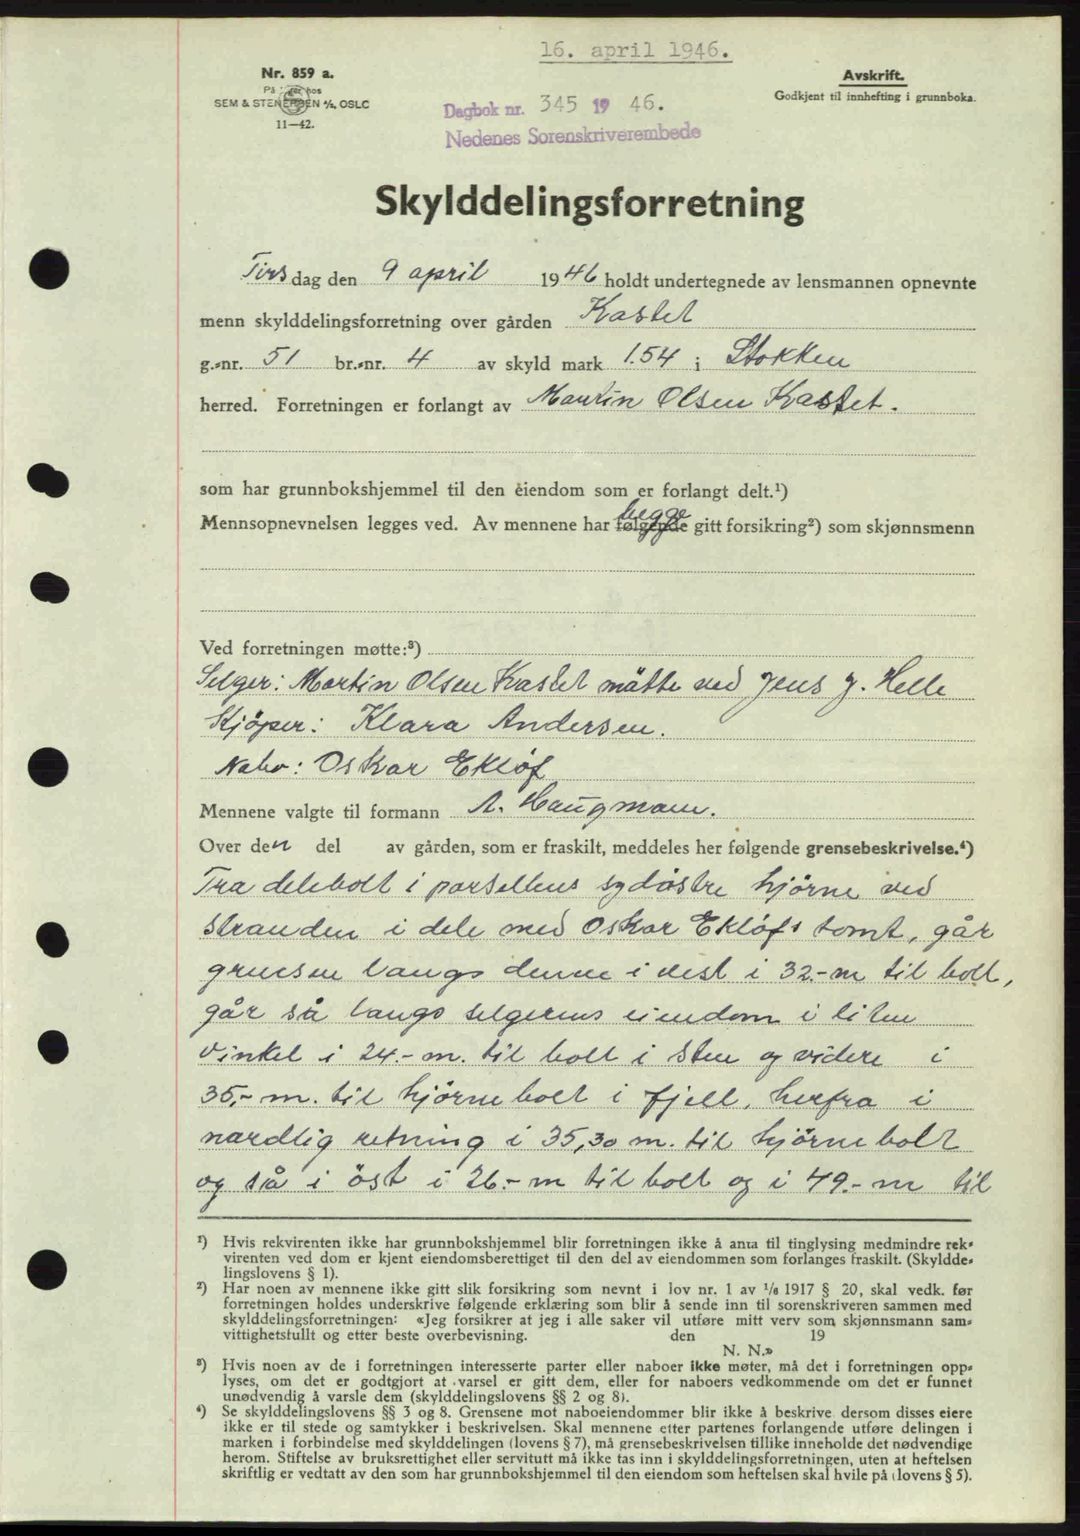 16. april 1946.
Nr. 859 a.
På lager hos
SEM & STENERSEN A/S, OSLO
11—42.
Avskrift.
Godkjent til innhefting i grunnboka.
Dagbok nr. 345 19 46.
Nedenes Sorenskriverembede
Skylddelingsforretning
Tirsdag den 9 april 1946 holdt undertegnede av lensmannen opnevnte
menn skylddelingsforretning over gården Kastet
g.-nr. 51 br.-nr. 4 av skyld mark 1.54 i Stokken
herred. Forretningen er forlangt av Martin Olsen Kastet.
som har grunnbokshjemmel til den eiendom som er forlangt delt.¹)
Mennsopnevnelsen legges ved. Av mennene har følgende begge gitt forsikring²) som skjønnsmenn
Ved forretningen møtte:³)
Selger: Martin Olsen Kastet møtte ved Jens J. Helle
Kjöper: Klara Andersen.
Nabo: Oskar Eklöf
Mennene valgte til formann A. Haugmann.
Over den del av gården, som er fraskilt, meddeles her følgende grensebeskrivelse.⁴)
Fra delebolt i parsellens sydöstre hjörne ved
stranden i dele med Oskar Eklöfs tomt, går
grensen langs denne i vest i 32.- m til bolt,
går så langs selgerens eiendom i liten
vinkel i 24.- m. til bolt i sten og videre i
35,- m. til hjörnebolt i fjell, herfra i
nordlig retning i 35,30 m. til hjörnebolt
og så i öst i 26.- m til bolt og i 49.- m til
¹) Hvis rekvirenten ikke har grunnbokshjemmel blir forretningen ikke å anta til tinglysing medmindre rek-
virenten ved dom er kjent eiendomsberettiget til den del av eiendommen som forlanges fraskilt. (Skyldde-
lingslovens § 1).
²) Har noen av mennene ikke gitt slik forsikring som nevnt i lov nr. 1 av ¹/₆ 1917 § 20, skal vedk. før
forretningen holdes underskrive følgende erklæring som blir å sende inn til sorenskriveren sammen med
skylddelingsforretningen: «Jeg forsikrer at jeg i alle saker vil utføre mitt verv som skjønnsmann sam-
vittighetsfullt og etter beste overbevisning. den 19
N. N.»
³) Hvis noen av de i forretningen interesserte parter eller naboer ikke møter, må det i forretningen opp-
lyses, om det er godtgjort at varsel er gitt dem, eller for naboers vedkommende om det er funnet
unødvendig å varsle dem (skylddelingslovens §§ 2 og 8).
⁴) Se skylddelingslovens §§ 3 og 8. Grensene mot naboeiendommer blir ikke å beskrive dersom disses eiere
ikke er til stede og samtykker i beskrivelsen. Skal mennene etter partenes forlangende utføre delingen i
marken i forbindelse med skylddelingen (lovens § 7), må grensebeskrivelsen tillike inneholde det nødvendige
herom. Stiftelse av bruksrettighet eller servitutt må ikke tas inn i skylddelingsforretningen, uten at heftelsen
skriftlig er vedtatt av den som har grunnbokshjemmel til den eiendom som heftelsen skal hvile på (lovens § 5).